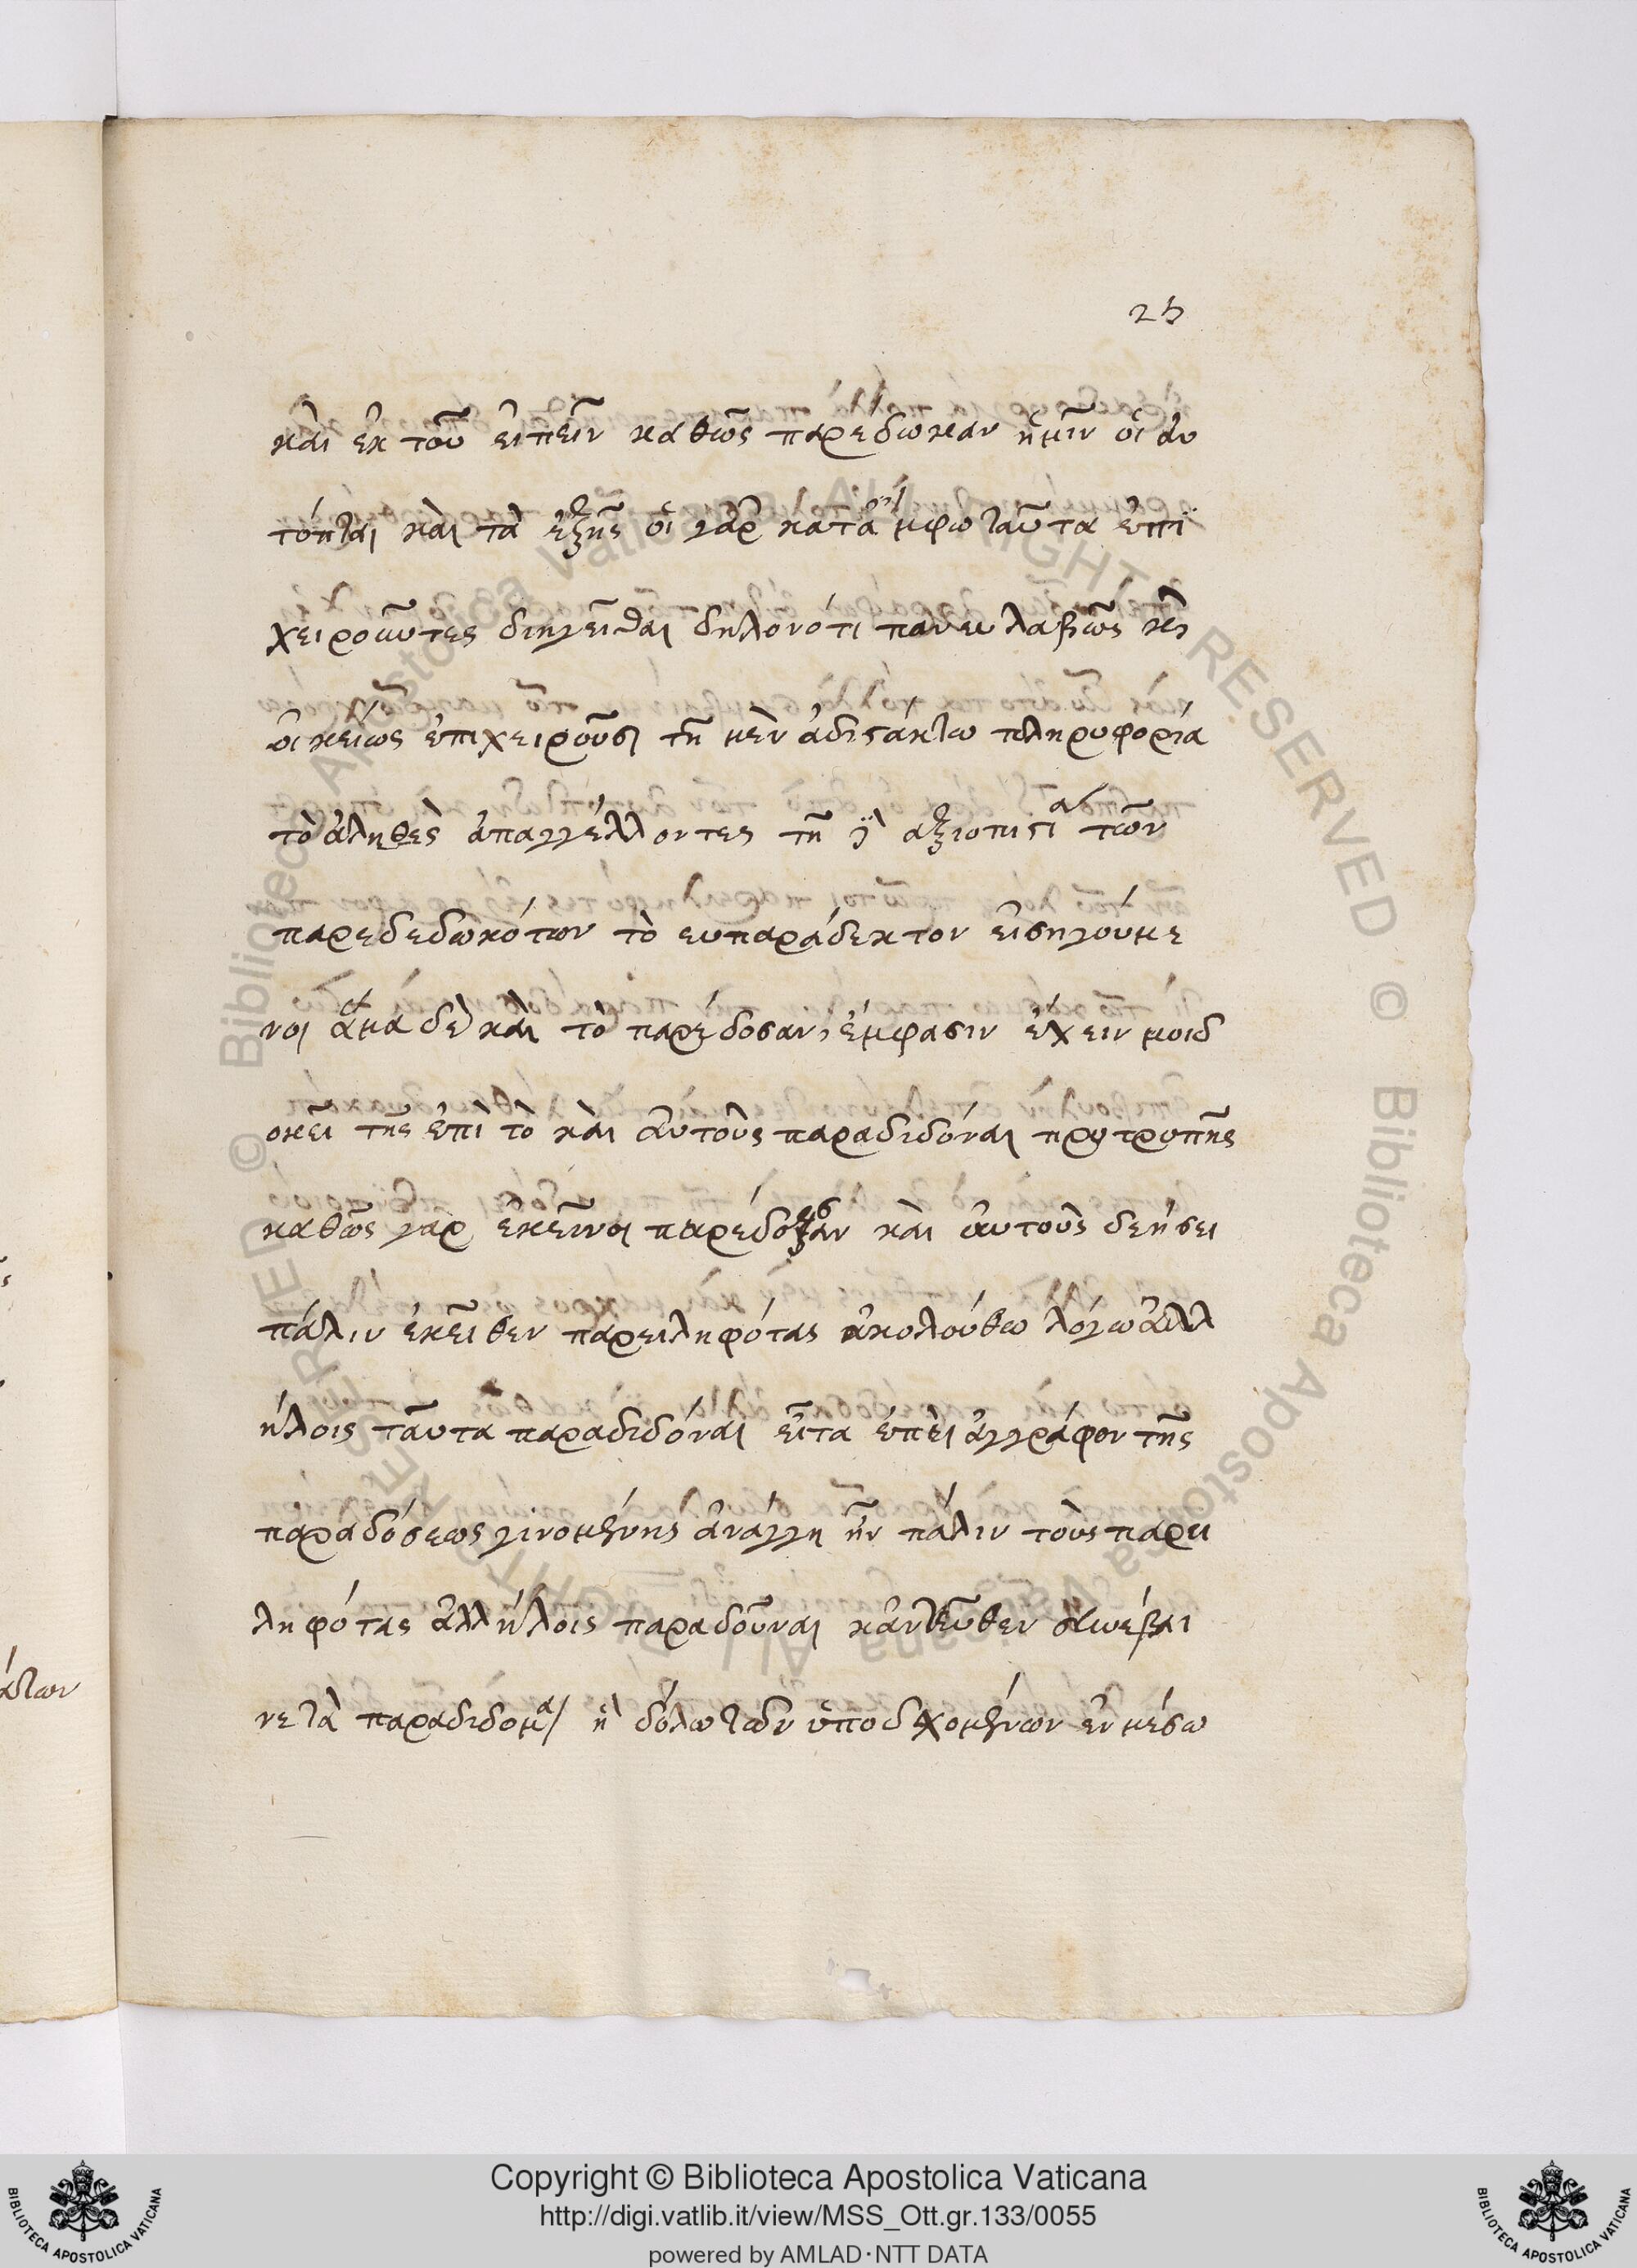 25
καὶ ἐκ τοῦ εἰπεῖν καθὼς παρέδωκαν ἡμῖν οἱ αὐ
τόπται καὶ τὰ ἑξῆς οἱ γὰρ κατὰ ταῦτα ἐπι
χειροῦντες διηγεῖσθαι δηλονότι πάνευλαβῶς καὶ
οἰκείως ἐπιχειροῦσι τῇ μὲν ἀδιστάκτω πληροφορία
τὸ ἀληθὲς ἀπαγγέλλοντες τῇ δὲ αξιοπιστία τῶν
παρεδεδωκότων τὸ ευπαράδεκτον εἰσηγούμε
νοι ἅμα δὲ καὶ τὸ παρέδοσαν, ἔμφασιν ἔχειν μοιδ
οκεῖ τῆς ἐπὶ τὸ καὶ αὐτοὺς παραδιδόναι προτροπῆς
καθὼς γὰρ ἐκεῖνοι παρέδοσαν καὶ αὐτοὺς δεήσει
πάλιν ἐκεῖθεν παρειληφότας ἀκολούθω λόγω ἀλλ
ήλοις ταῦτα παραδιδόναι εἶτα ἐπεὶ ἀγγράφου τῆς
παραδόσεως γινομένης ἀνάγγη ἦν πάλιν τοὺς παρει
ληφότας ἀλλήλοις παραδοῦναι κἀντεῦθεν συνέβαι
νε τὰ παραδιδομα ἢ δόλω τῶν ὑποδεχομένων ἐν μέσω
άτων
Copyright © Biblioteca Apostolica Vaticana
http://digi.vatlib.it/view/MSS_Ott.gr.133/0055
powered by AMLAD·NTT DATA
BIBLIOTECA APOSTOLICA VATICANA
BIBLIOTECA APOSTOLICA VATICANA
© Biblioteca Apostolica Vaticana ALL RIGHTS RESERVED © Biblioteca Apostolica Vaticana ALL RIGHTS RESERVED